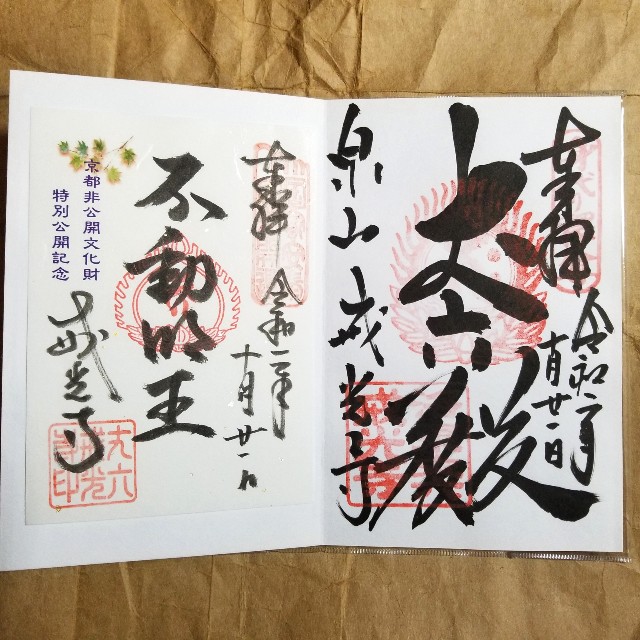 奉拝
令和二年
十月廿一日
丈六殿
泉山 戒光寺
奉拝
令和二年
十月廿一日
不動明王
京都非公開文化財
特別公開記念
戒光寺